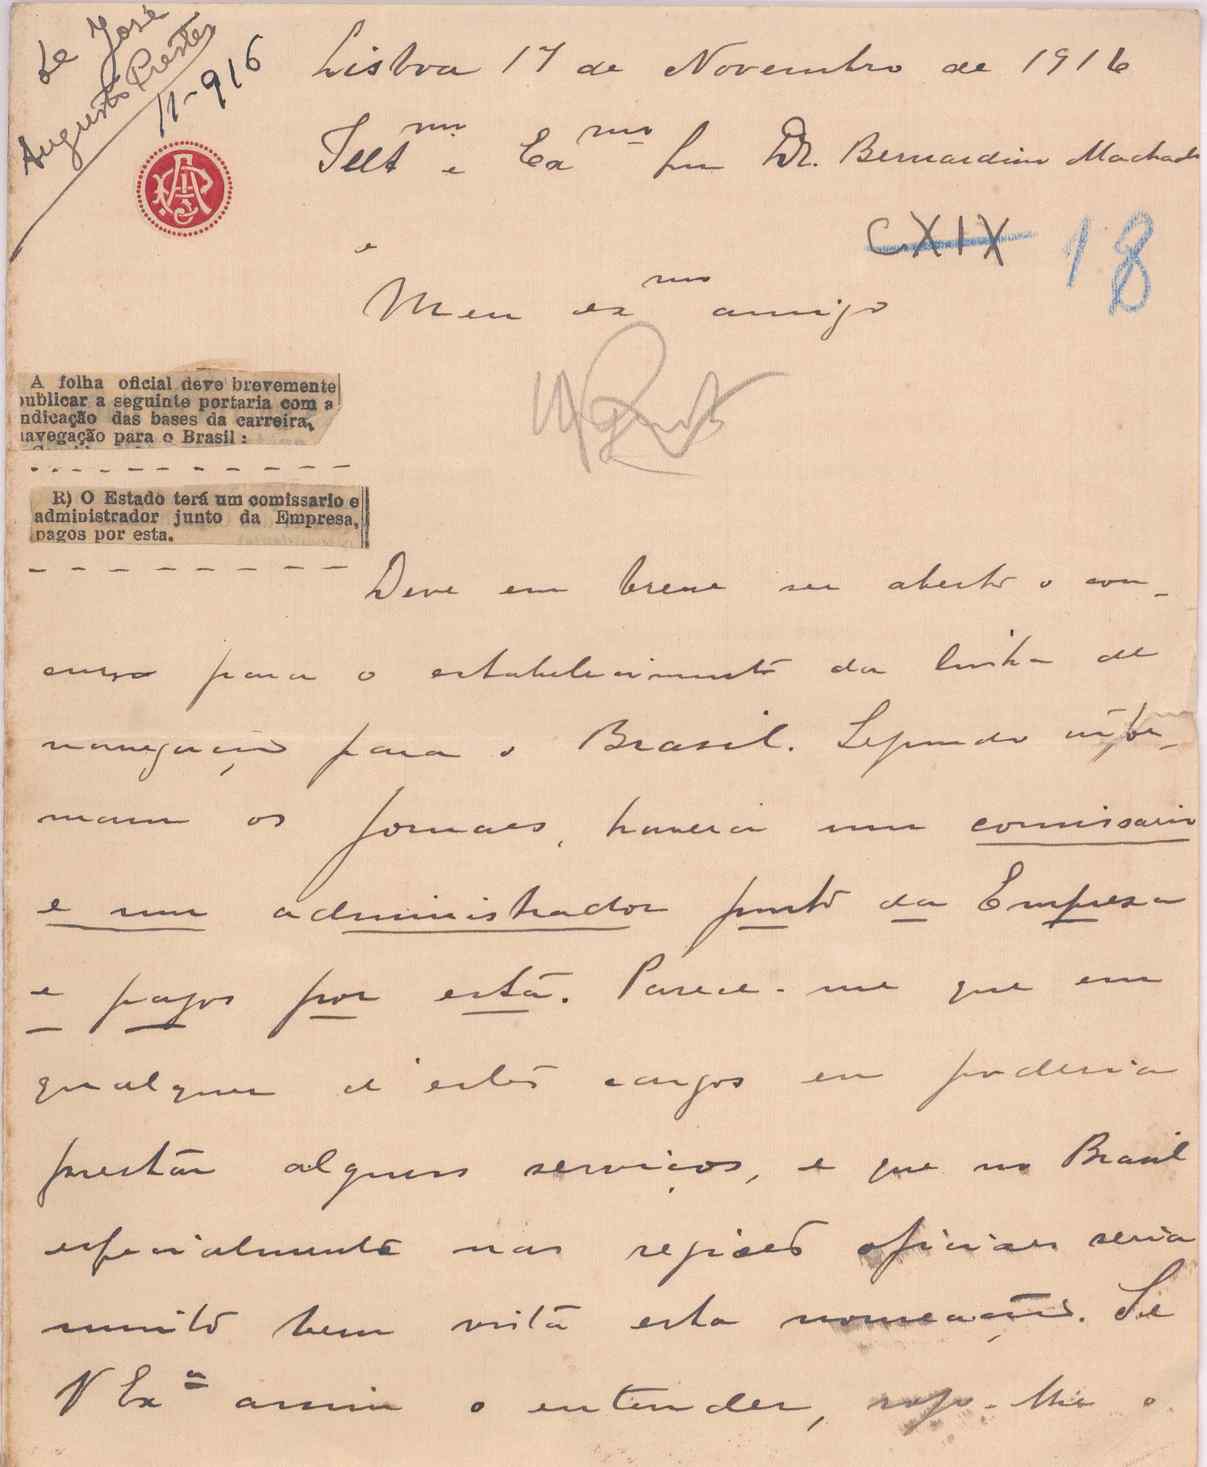 de José
Augusto Prestes
11-916
Lisboa 17 de Novembro de 1916
Illmo e Exmo Snr Dr. Bernardino Machado
CXIX 18
e
Meu exmo amigo
A folha oficial deve brevemente
publicar a seguinte portaria com a
indicação das bases da carreira,
navegação para o Brasil:
R) O Estado terá um comissario e
administrador junto da Empresa,
pagos por esta.
Deve em breve ser aberto o con-
curso para o estabelecimento da linha de
navegação para o Brasil. Segundo infor-
mam os jornaes, haverá um comissario
e um administrador junto da Empresa
e pagos por esta. Parece-me que em
qualquer d'estes cargos eu poderia
prestar alguns serviços, e que no Brasil
especialmente nas regiões oficiaes seria
muito bem vista esta nomeação. Se
V Exa assim o entender, rogo-lhe o